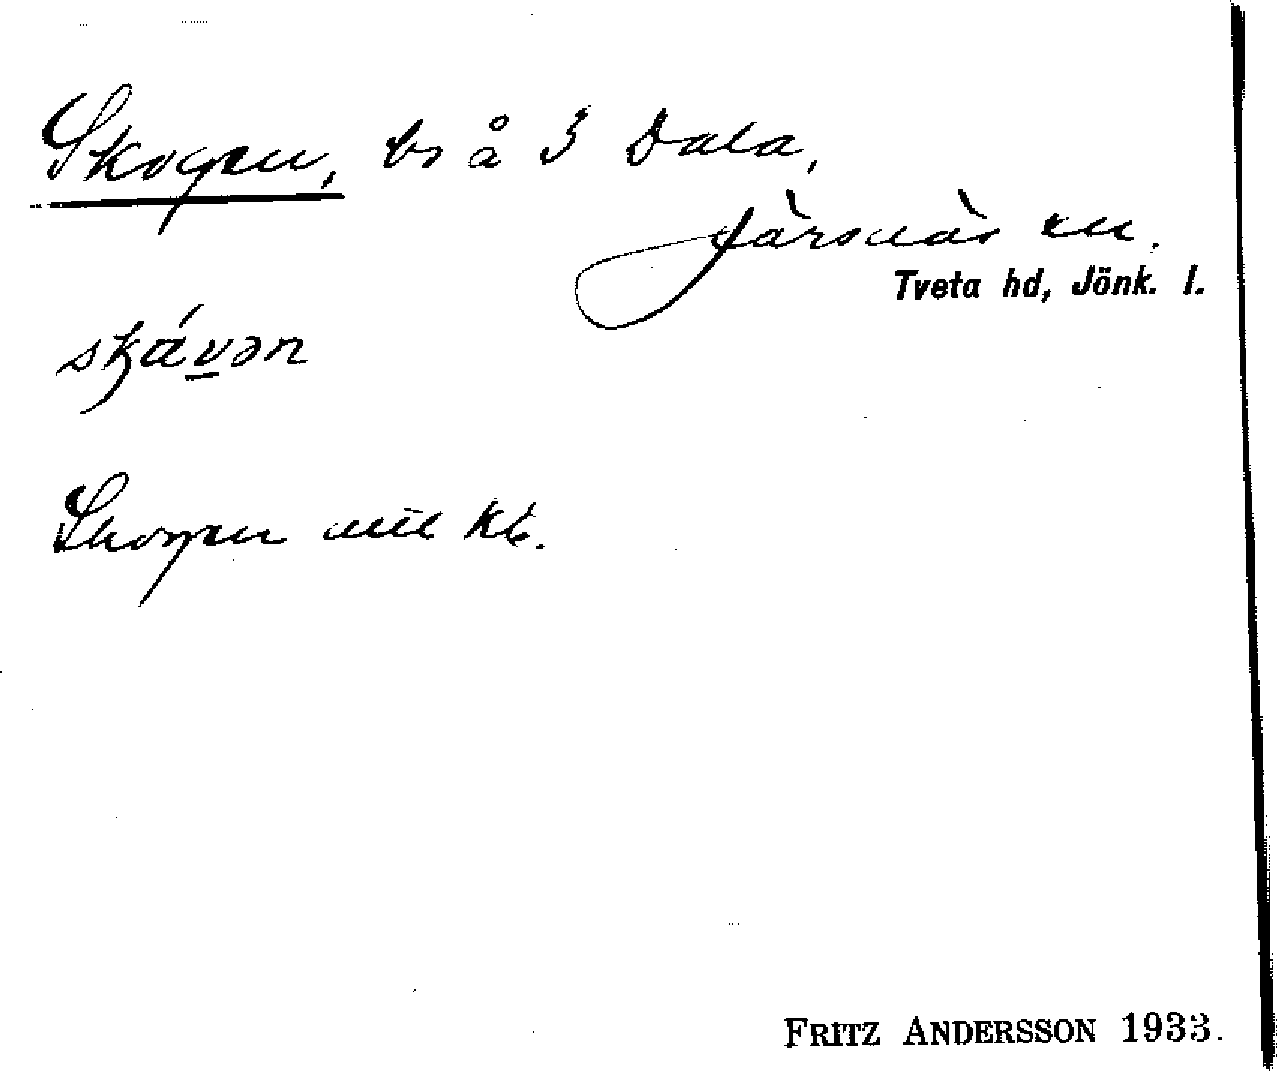 Skogen, bs å 3 Dala,
Järsnäs sn.
Tveta hd, Jönk. l.
skávən
Skogen mil kb.
FRITZ ANDERSSON 1933.